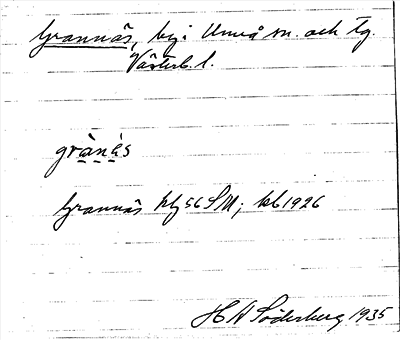 Grannäs, by i Umeå sn. och tg.
Västerb. l.
grànàs
Grannäs kbf 56 SM; kb 1926
H A Söderberg 1935